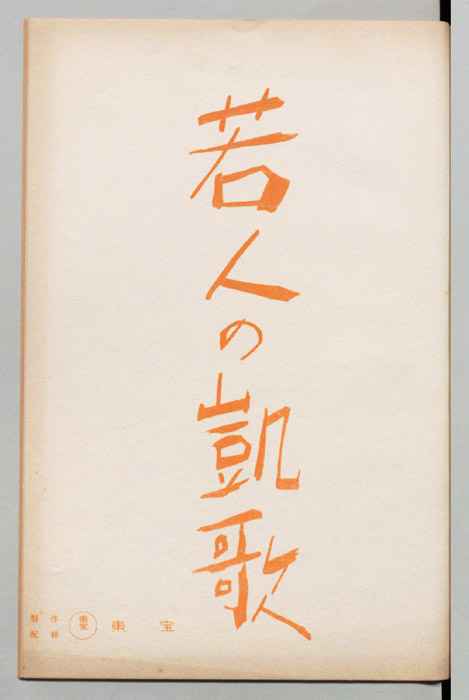 若人の凱歌
製作
配給
東宝
東宝